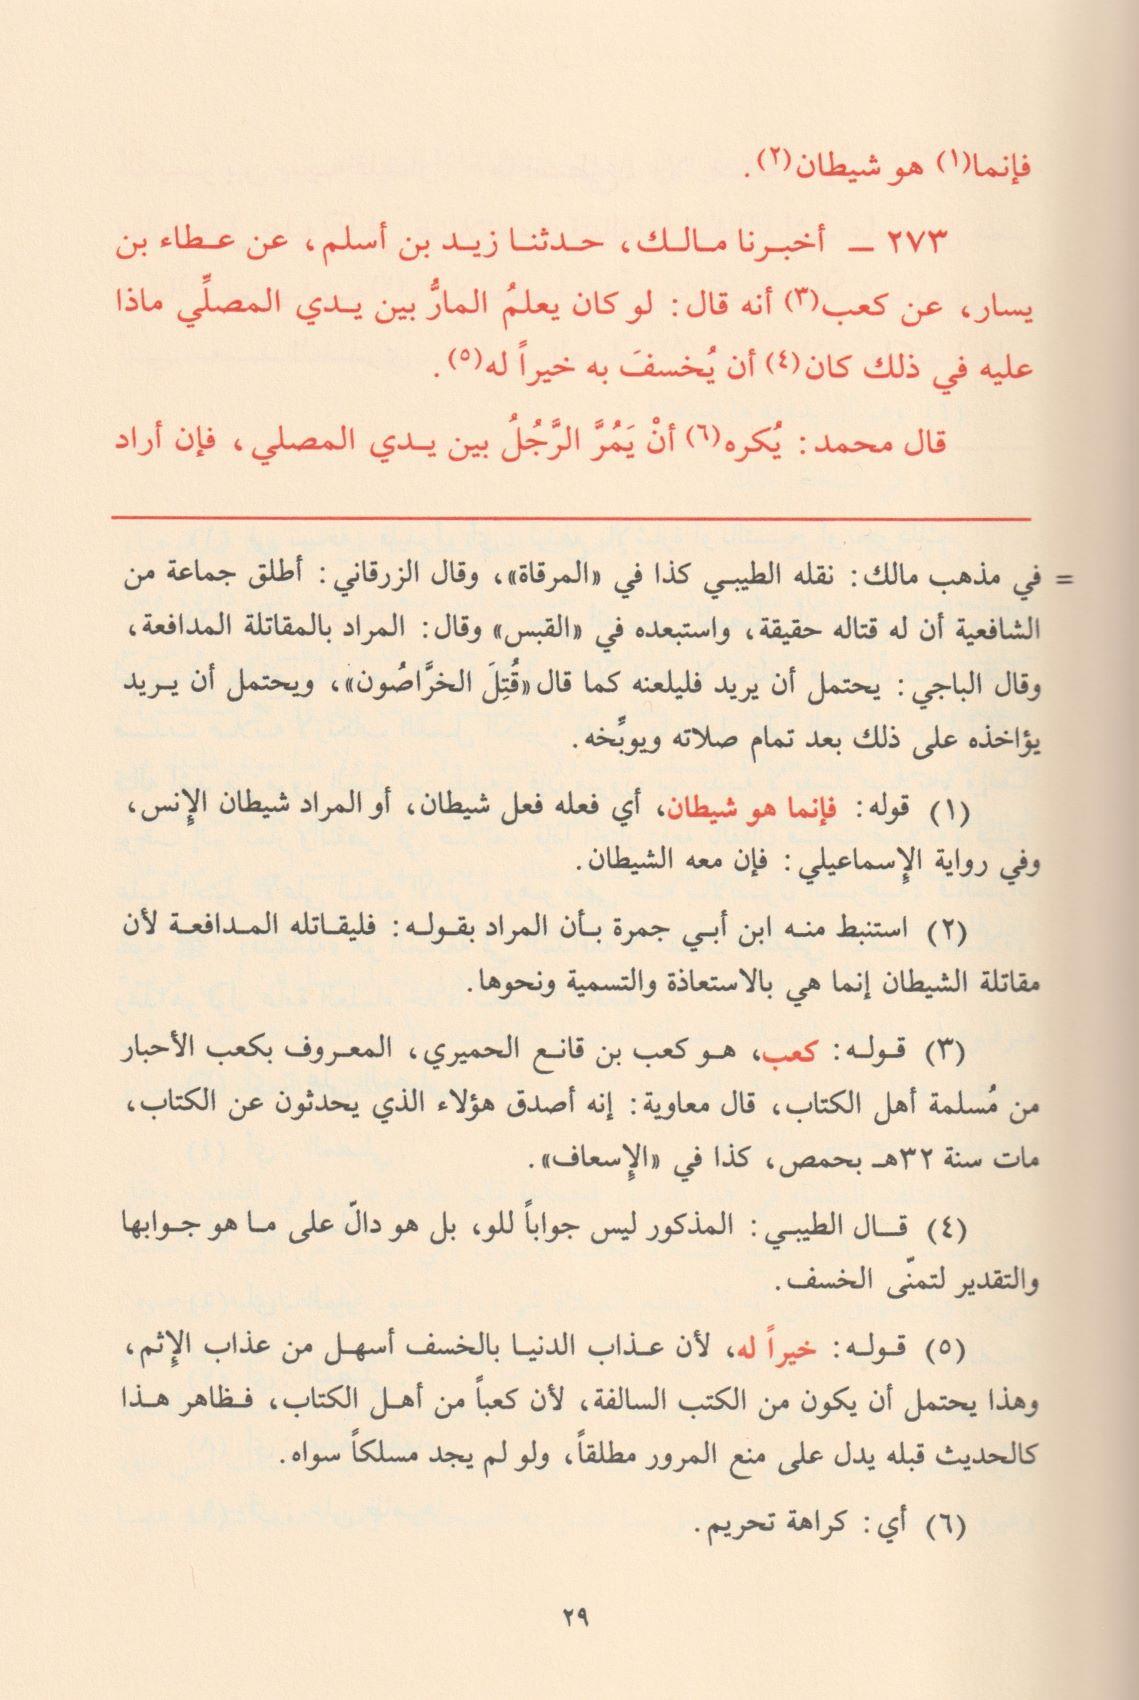 فإنما(١) هو شيطان(٢).
٢٧٣ ـ أخبرنا مالك، حدثنا زيد بن أسلم، عن عطاء بن
يسار، عن كعب(٣) أنه قال: لو كان يعلمُ المارُّ بين يدي المصلِّي ماذا
عليه في ذلك كان(٤) أن يُخسفَ به خيراً له(٥).
قال محمد: يُكره(٦) أنْ يَمُرَّ الرَّجُلُ بين يدي المصلي، فإن أراد
= في مذهب مالك: نقله الطيبي كذا في «المرقاة»، وقال الزرقاني: أطلق جماعة من
الشافعية أن له قتاله حقيقة، واستبعده في «القبس» وقال: المراد بالمقاتلة المدافعة،
وقال الباجي: يحتمل أن يريد فليلعنه كما قال «قُتِلَ الخرَّاصُون»، ويحتمل أن يريد
يؤاخذه على ذلك بعد تمام صلاته ويوبِّخه.
(١) قوله: فإنما هو شيطان، أي فعله فعل شيطان، أو المراد شيطان الإِنس،
وفي رواية الإِسماعيلي: فإن معه الشيطان.
(٢) استنبط منه ابن أبي جمرة بأن المراد بقوله: فليقاتله المدافعة لأن
مقاتلة الشيطان إنما هي بالاستعاذة والتسمية ونحوها.
(٣) قوله: كعب، هو كعب بن قانع الحميري، المعروف بكعب الأحبار
من مُسلمة أهل الكتاب، قال معاوية: إنه أصدق هؤلاء الذي يحدثون عن الكتاب،
مات سنة ٣٢هـ بحمص، كذا في «الإِسعاف».
(٤) قال الطيبي: المذكور ليس جواباً للو، بل هو دالّ على ما هو جوابها
والتقدير لتمنّى الخسف.
(٥) قوله: خيراً له، لأن عذاب الدنيا بالخسف أسهل من عذاب الإِثم،
وهذا يحتمل أن يكون من الكتب السالفة، لأن كعباً من أهل الكتاب، فظاهر هذا
كالحديث قبله يدل على منع المرور مطلقاً، ولو لم يجد مسلكاً سواه.
(٦) أي: كراهة تحريم.
٢٩